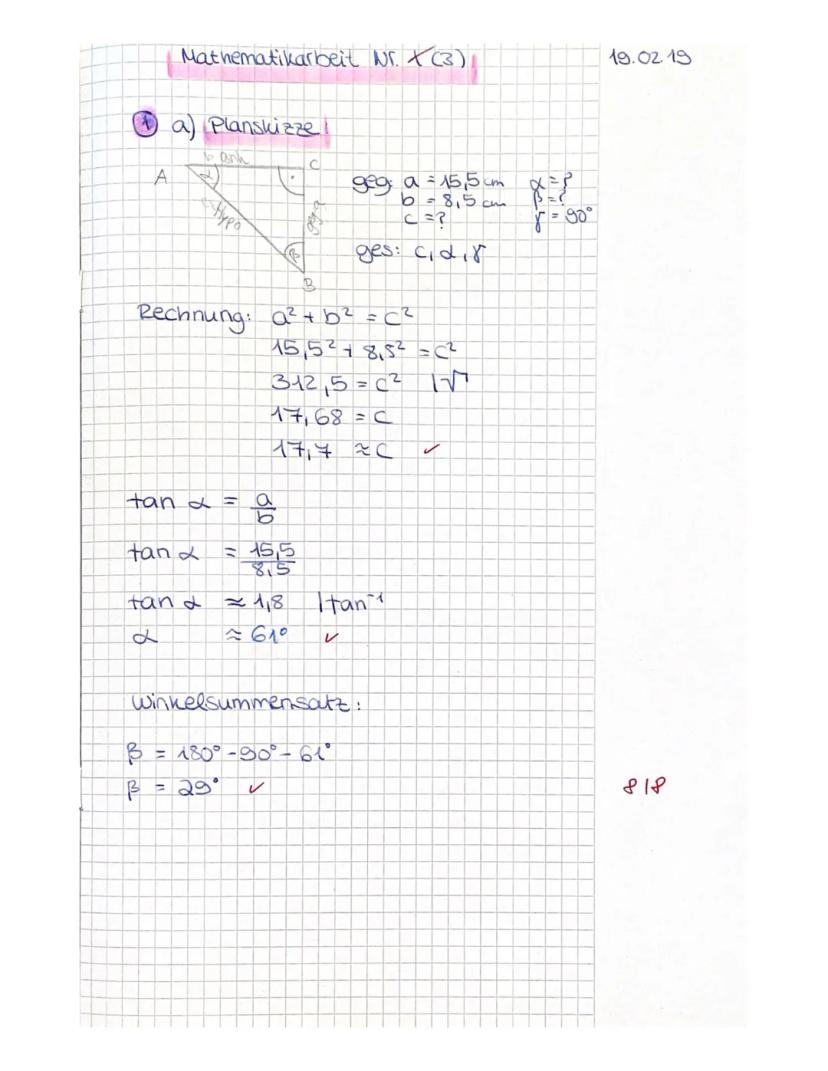 Mathematikarbeit Nr. X (3) 19.02.19
1 a) Planskizze
b anh
A α C
c Hypo
geg. a
β
B
geg: a = 15,5 cm α = ?
b = 8,5 cm β = ?
c = ? γ = 90°
ges: c, α, γ
Rechnung: a² + b² = c²
15,5² + 8,5² = c²
312,5 = c² |√
17,68 = c
17,7 ≈ c ✓
tan α = a/b
tan α = 15,5/8,5
tan α ≈ 1,8 | tan⁻¹
α ≈ 61° ✓
Winkelsummensatz:
β = 180° - 90° - 61°
β = 29° ✓ 8/8